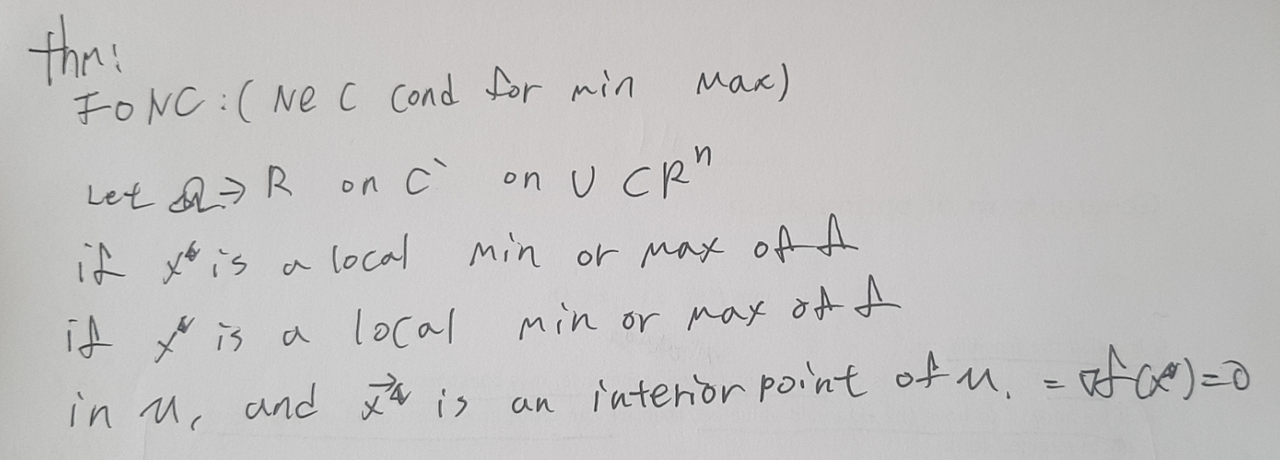 thm:
FONC: (Nec cond for min max)
Let Ω → R on C` on U ⊂ Rⁿ
if x* is a local min or max of f
if x* is a local min or max of f
in u, and x⃗* is an interior point of u. = ∇f(x*)=0